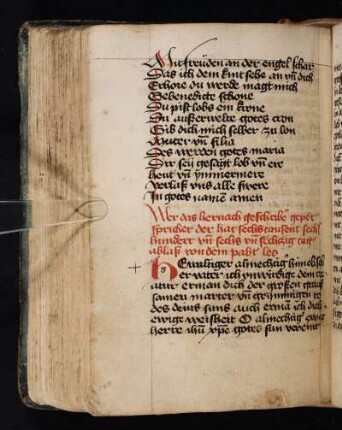 Mit freüden an der engel schar
Das ich dem kint sehe an vn̄ dich
Erhore du werde magt mich
Gebenedicte schone
Du pist lobs ein krone
Du außerwelte gotes tron
Gib dich mich selber zu lon
Muter vn̄ filia
Des werden gotes maria
Dir sey gesagt lob vn̄ ere
heut vn̄ ymmermere
verlaß vns alle swere
In gotes namē amen
Wer das hernach geschribē gepet
spricher der hat sechs tausent sechs
hundert vn̄ sechs vn̄ sechczig tag
ablaß von dem pabst leo
Ewiger almechtig himelisch
er vater ich vnwirdige dem cre
atur erman dich der großen grau
samen marter vn̄ grimmigen to
des deins suns auch erman ich dich
ewige weisheit O almechtig ewig
herre ihū xpē gotes sun vereint